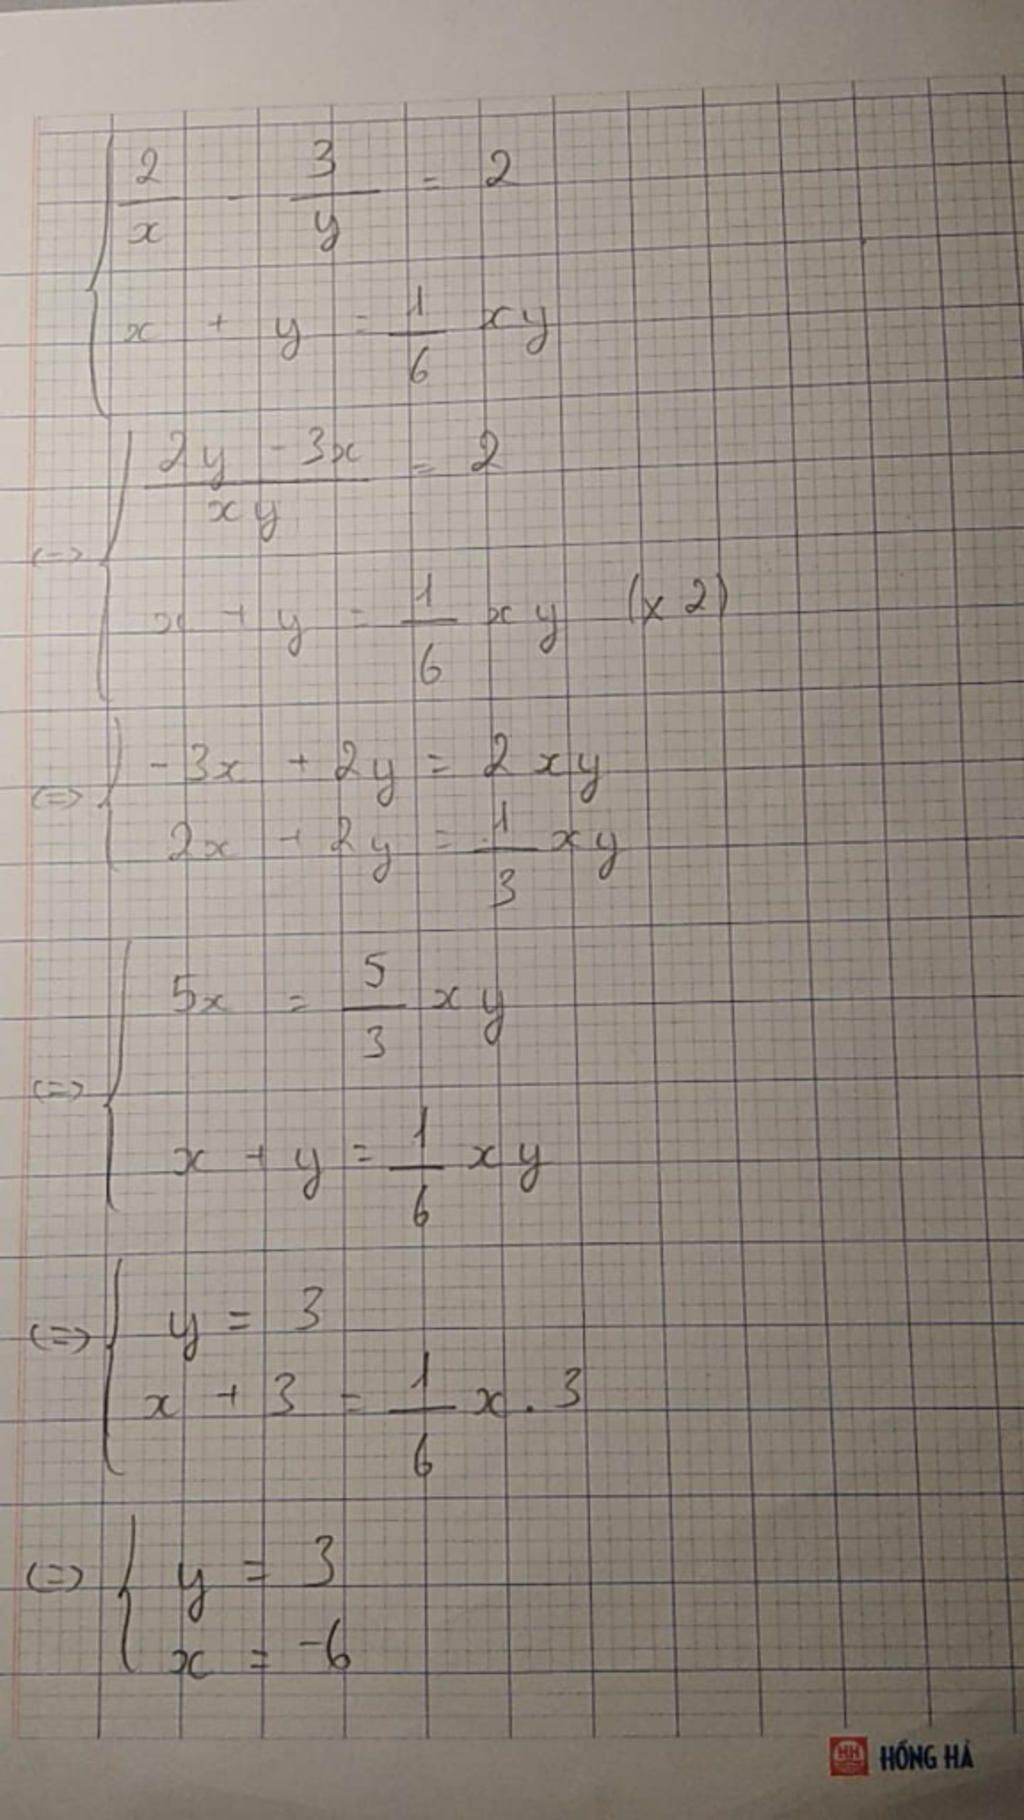 { 2/x - 3/y = 2
x + y = 1/6 xy
<=> { (2y - 3x)/(xy) = 2
x + y = 1/6 xy (x 2)
<=> { -3x + 2y = 2xy
2x + 2y = 1/3 xy
<=> { 5x = 5/3 xy
x + y = 1/6 xy
<=> { y = 3
x + 3 = 1/6 x . 3
<=> { y = 3
x = -6
HH HỒNG HÀ